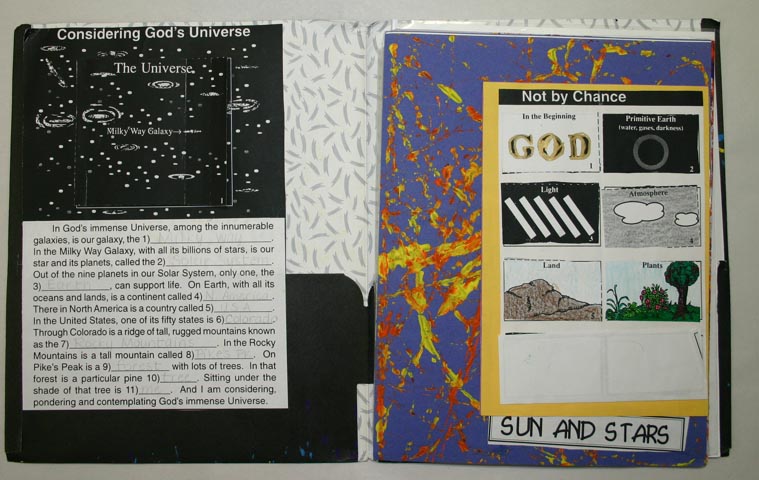 Considering God's Universe
The Universe
Milky Way Galaxy→
1
In God's immense Universe, among the innumerable
galaxies, is our galaxy, the 1)
In the Milky Way Galaxy, with all its billions of stars, is our
star and its planets, called the 2)
Out of the nine planets in our Solar System, only one, the
3) Earth, can support life. On Earth, with all its
oceans and lands, is a continent called 4)
There in North America is a country called 5) USA
In the United States, one of its fifty states is 6) Colorado.
Through Colorado is a ridge of tall, rugged mountains known
as the 7) Rocky Mountains. In the Rocky
Mountains is a tall mountain called 8) Pikes Pk. On
Pike's Peak is a 9) forest with lots of trees. In that
forest is a particular pine 10) tree. Sitting under the
shade of that tree is 11) me. And I am considering,
pondering and contemplating God's immense Universe.
Not by Chance
In the Beginning
GOD
1
Primitive Earth
(water, gases, darkness)
2
Light
3
Atmosphere
4
Land
Plants
SUN AND STARS